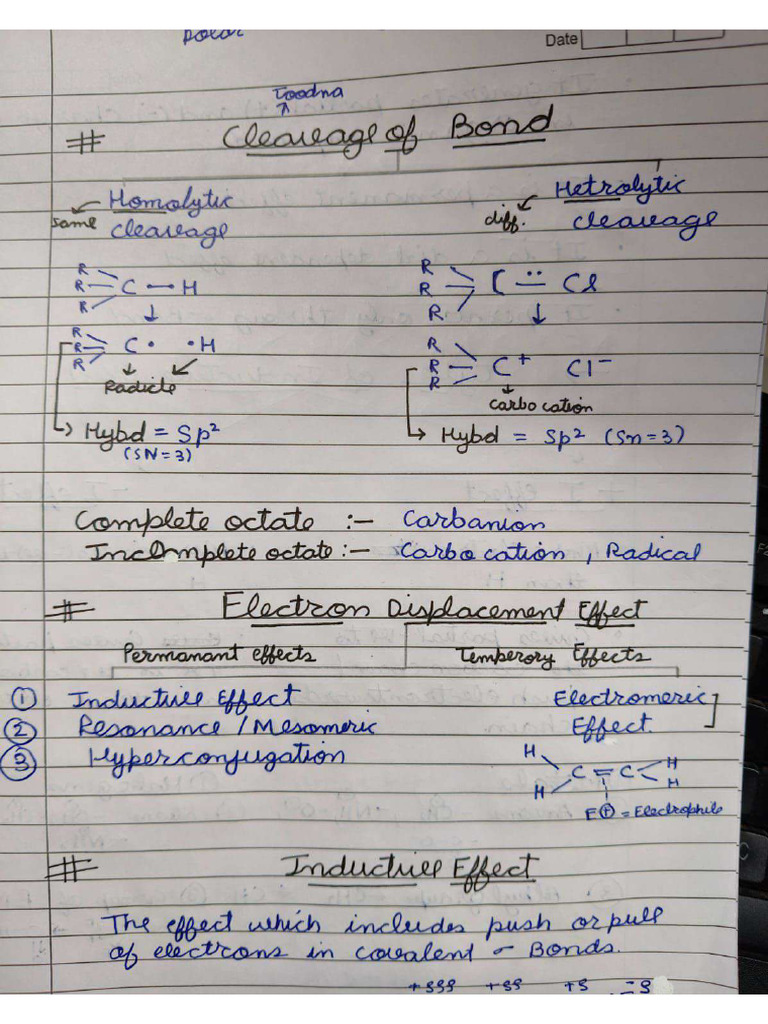 polar
Date
Toodna
# Cleavage of Bond
Homolytic Hetrolytic
same cleavage diff. cleavage
R R
R C — H R C Cl
R R
R R
R C• •H R C+ Cl−
R R
Radicle Carbo cation
→ Hybd = Sp² → Hybd = Sp² (Sn=3)
(SN=3)
Complete octate :– Carbanion
Incomplete octate :– Carbo cation , Radical
# Electron Displacement Effect
Permanant effects Temperory Effects
① Inductive Effect Electromeric
② Resonance / Mesomeric Effect.
③ Hyperconjugation
H H
C = C
H H
E⊕ = Electrophile
# Inductive Effect
The effect which includes push or pull
of electrons in covalent σ Bonds.
+δδδ +δδ +δ −δ